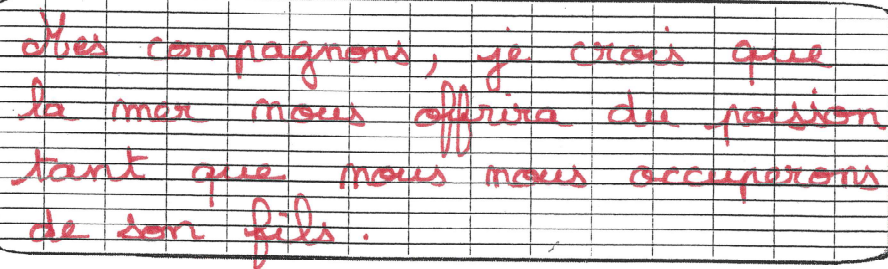 Mes compagnons, je crois que
la mer nous offrira du poisson
tant que nous nous occuperons
de son fils.